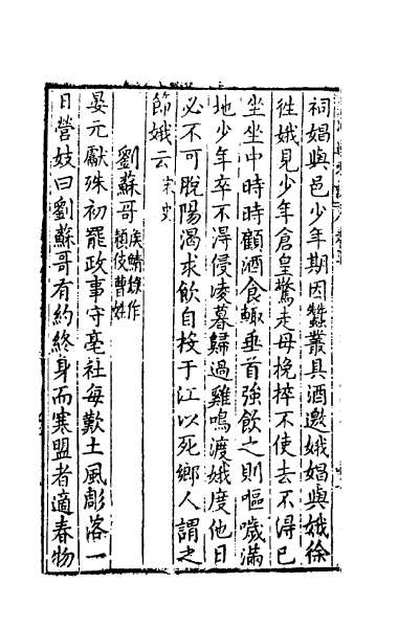 祠娼與邑少年期因蠶叢具酒邀娥娼與娥徐
徃娥見少年倉皇驚走母挽捽不使去不得已
坐坐中時時顧酒食輙垂首強飲之則嘔噦滿
地少年卒不得侵凌暮歸過雞鳴渡娥度他日
必不可脫陽渴求飲自投于江以死鄉人謂之
節娥云宋史
劉蘇哥侯鯖錄作
額伎曹姓
晏元獻殊初罷政事守亳社每歎土風彫落一
日營妓曰劉蘇哥有約終身而寒盟者適春物